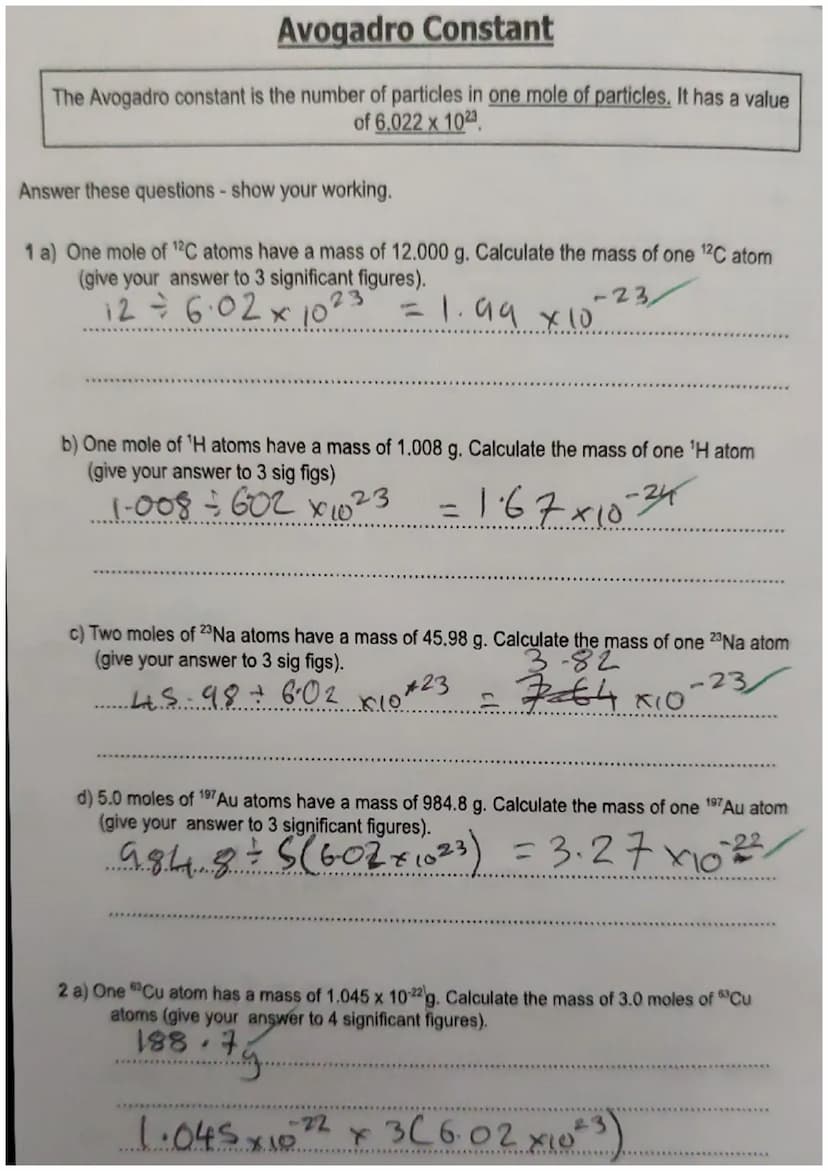 Avogadro Constant
The Avogadro constant is the number of particles in one mole of particles. It has a value
of 6.022 x 10²³.
Answer these questions - show your working.
1 a) One mole of ¹²C atoms have a mass of 12.000 g. Calculate the mass of one ¹²C atom
(give your answer to 3 significant figures).
12 ÷ 6.02 x 10²³ = 1.99 x10⁻²³
b) One mole of ¹H atoms have a mass of 1.008 g. Calculate the mass of one ¹H atom
(give your answer to 3 sig figs)
1.008 ÷ 602 x10²³ = 1.67 x10⁻²⁴
c) Two moles of ²³Na atoms have a mass of 45.98 g. Calculate the mass of one ²³Na atom
(give your answer to 3 sig figs).
3.82
45.98 ÷ 6.02 x10²³ = 7.64 x10⁻²³
d) 5.0 moles of ¹⁹⁷Au atoms have a mass of 984.8 g. Calculate the mass of one ¹⁹⁷Au atom
(give your answer to 3 significant figures).
984.8 ÷ 5(6.02 x 10²³) = 3.27 x10⁻²²
2 a) One ⁶³Cu atom has a mass of 1.045 x 10⁻²² g. Calculate the mass of 3.0 moles of ⁶³Cu
atoms (give your answer to 4 significant figures).
188.7g
1.045 x10⁻²² x 3(6.02 x10²³)